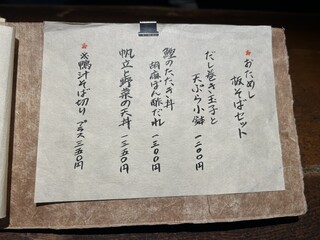 おためし
板そばセット
だし巻き玉子と
天ぷら小鉢 一二〇〇円
鰹のたたき丼
胡麻ぽん酢だれ 一三〇〇円
帆立と野菜の天丼 一三五〇円
鴨汁そば切り プラス三五〇円